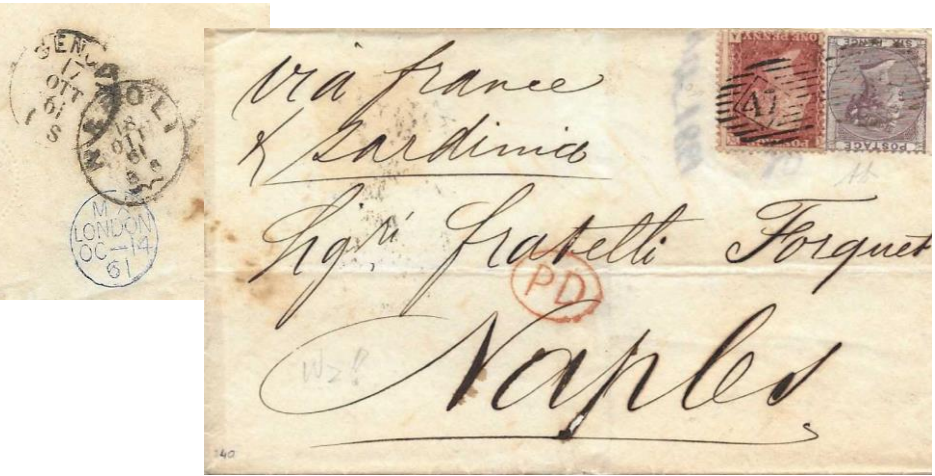 GENOVA
17
OTT
61
8
NAPOLI
18
OTT
61
8
M.C
LONDON
OC-14
61
via france
& Sardinia
Sigri fratelli Forquet
Naples
PD
ONE PENNY
A
47
SIX PENCE
POSTAGE
40